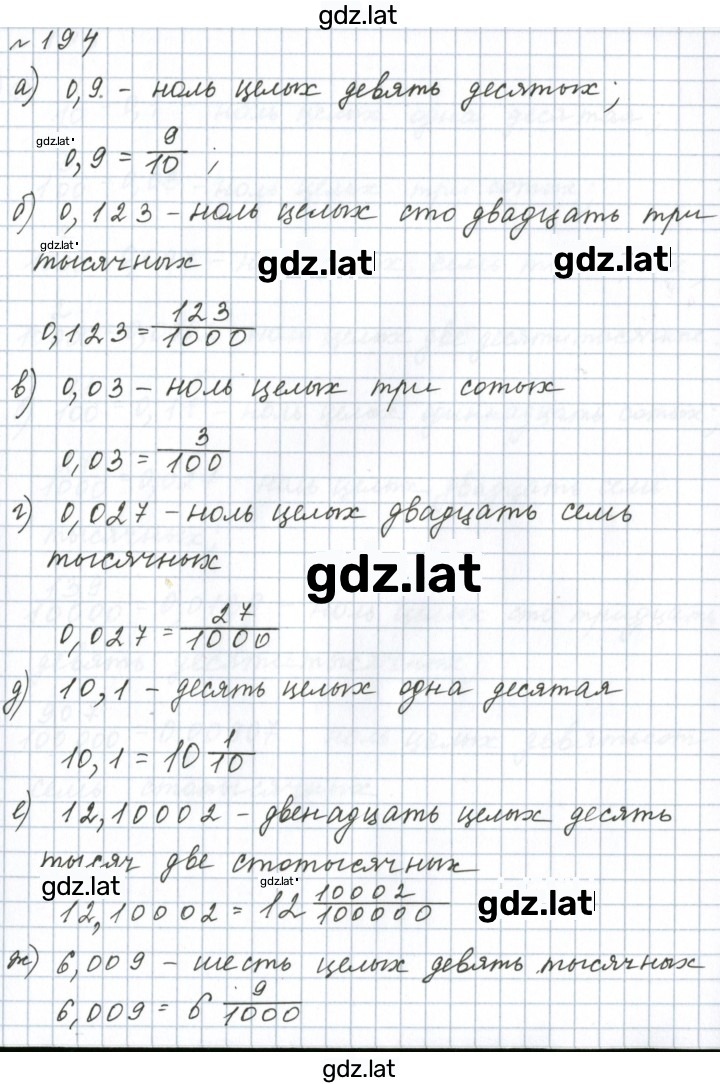 gdz.lat
№ 194
а) 0,9 - ноль целых девять десятых;
gdz.lat
0,9 = 9/10 ;
б) 0,123 - ноль целых сто двадцать три
gdz.lat
тысячных
gdz.lat gdz.lat
0,123 = 123/1000
в) 0,03 - ноль целых три сотых
0,03 = 3/100
г) 0,027 - ноль целых двадцать семь
тысячных
gdz.lat
0,027 = 27/1000
д) 10,1 - десять целых одна десятая
10,1 = 10 1/10
е) 12,10002 - двенадцать целых десять
тысяч две стотысячных
gdz.lat gdz.lat
12,10002 = 12 10002/100000
gdz.lat
ж) 6,009 - шесть целых девять тысячных
6,009 = 6 9/1000
gdz.lat